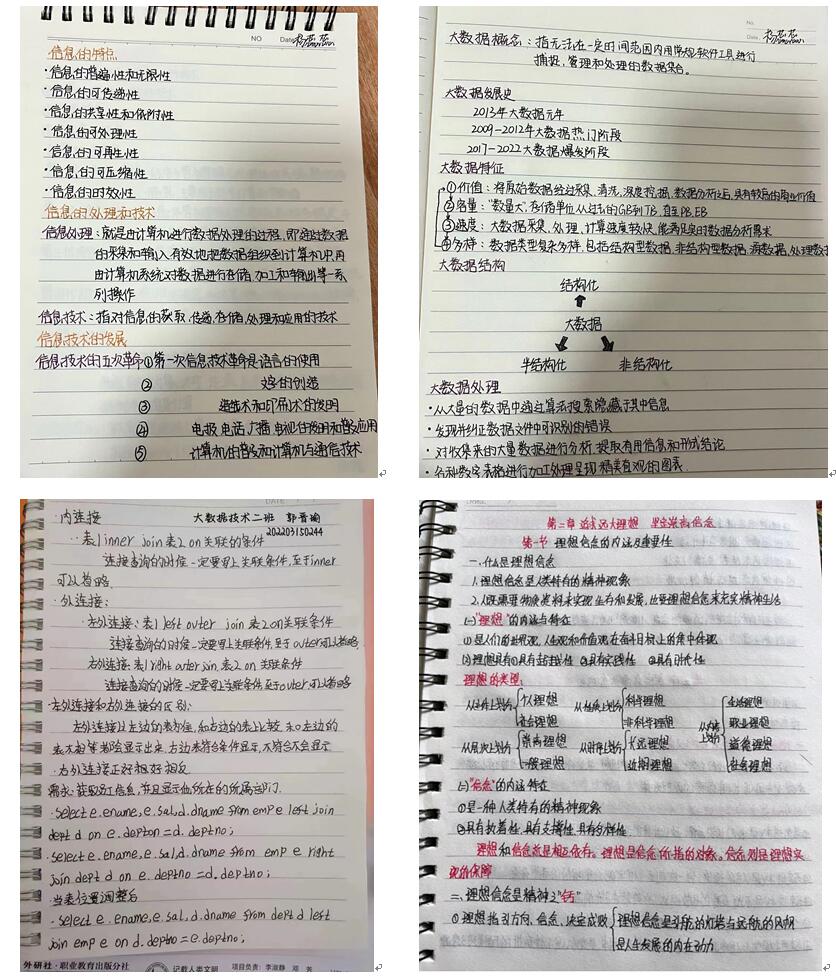 NO
Date
信息的特点
·信息的普遍性和无限性
·信息的可传递性
·信息的共享性和依附性
·信息的可处理性
·信息的可再生性
·信息的可压缩性
·信息的时效性
信息的处理和技术
信息处理：就是由计算机进行数据处理的过程，即通过数据
的采集和输入有效地把数据组织到计算机中,再
由计算机系统对数据进行存储、加工和输出等一系
列操作
信息技术：指对信息的获取、传递、存储、处理和应用的技术
信息技术的发展
信息技术的五次革命①第一次信息技术革命是语言的使用
② 文字的创造
③ 造纸术和印刷术的发明
④ 电报、电话、广播、电视的发明和普及应用
⑤ 计算机的普及和计算机与通信技术
No.
Date
大数据概念：指无法在一定时间范围内用常规软件工具进行
捕捉、管理和处理的数据集合。
大数据发展史
2013年大数据元年
2009-2012年大数据热门阶段
2017-2022大数据爆发阶段
大数据特征
①价值：将原始数据经过采集、清洗、深度挖掘、数据分析之后,具有较高的商业价值
②容量："数量大",存储单位从过去的GB到TB,直至PB、EB
③速度：大数据采集、处理、计算速度较快,能满足实时数据分析需求
④多样：数据类型复杂多样,包括结构型数据、非结构型数据、源数据、处理数据
大数据结构
结构化
大数据
半结构化 非结构化
大数据处理
·从大量的数据中通过算法搜索隐藏于其中信息
·发现并纠正数据文件中可识别的错误
·对收集来的大量数据进行分析,提取有用信息和形式结论
·各种数字表格进行加工处理呈现精美直观的图表
·内连接 大数据技术二班 郭晋瑜
202203150244
··表1 inner join 表2 on 关联的条件
连接查询的时候一定要写上关联条件,至于inner
可以省略.
·外连接:
左外连接:表1 left outer join 表2 on关联条件
连接查询的时候一定要写上关联条件,至于outer可以省略
右外连接:表1 right outer join 表2 on 关联条件
连接查询的时候一定要写上关联条件,至于outer可以省略
·左外连接和右外连接的区别:
左外连接以左边的表为准,和右边的表比较,和左边的
表不相等都会显示出来,右边表符合条件显示,不符合不会显示
·右外连接正好相反
需求:获取员工信息,并且显示他所在的所属部门.
·select e.ename,e.sal,d.dname from emp e left join
dept d on e.depton=d.deptno;
·select e.ename,e.sal,d.dname from emp e right
join dept d on e.deptno=d.deptno;
·当表位置调整后
·select e.ename,e.sal,d.dname from dept d left
join emp e on d.deptno=e.deptno;
外研社·职业教育出版分社 记载人类文明 项目负责：李淑静 邓 芳
第二章 追求远大理想 坚定崇高信念
第一节 理想信念的内涵及重要性
一、什么是理想信念
1.理想信念是人类特有的精神现象
2.人既需要物质资料来实现生存和发展,也要理想信念来充实精神生活
(一)"理想"的内涵与特征
①是人们的世界观、人生观和价值观在奋斗目标上的集中体现
②理想具有①具有超越性 ②具有实践性 ③具有时代性
理想的类型:
从性质上划分 科学理想 非科学理想
从层次上划分 崇高理想 一般理想
从时序上划分 长远理想 近期理想
从内容上划分 生活理想 职业理想 道德理想 社会理想
个人理想
社会理想
(二)"信念"的内涵特征
①是一种人类特有的精神现象
②具有执着性、具有支撑性、具有多样性
理想和信念总是相互依存。理想是信念所指的对象。信念则是理想实
现的保障
二、理想信念是精神之"钙"
①理想指引方向,信念决定成败
是人生发展的内在动力